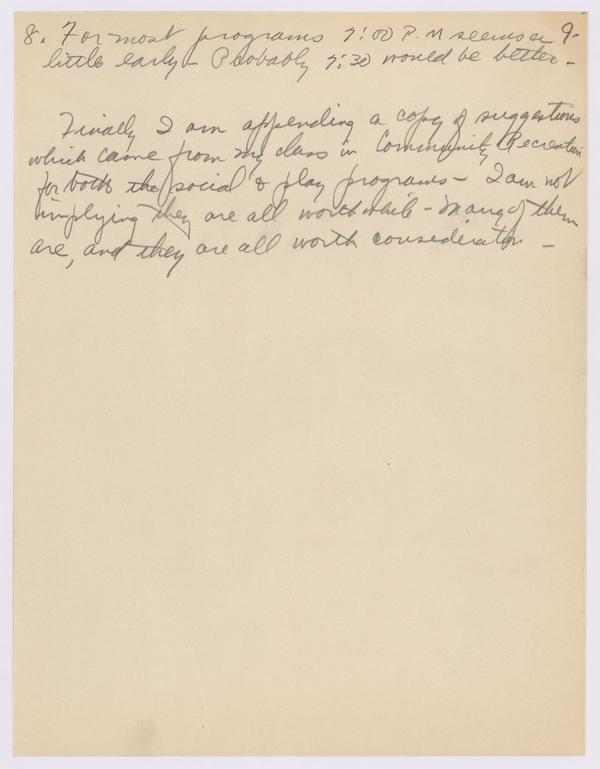 8. For most programs 7:00 P.M seems a 9.
little early - Probably 7:30 would be better -
Finally I am appending a copy of suggestions
which came from my class in Community Recreation
for both the social & play programs - I am not
implying they are all worthwhile - Many of them
are, and they are all worth consideration -